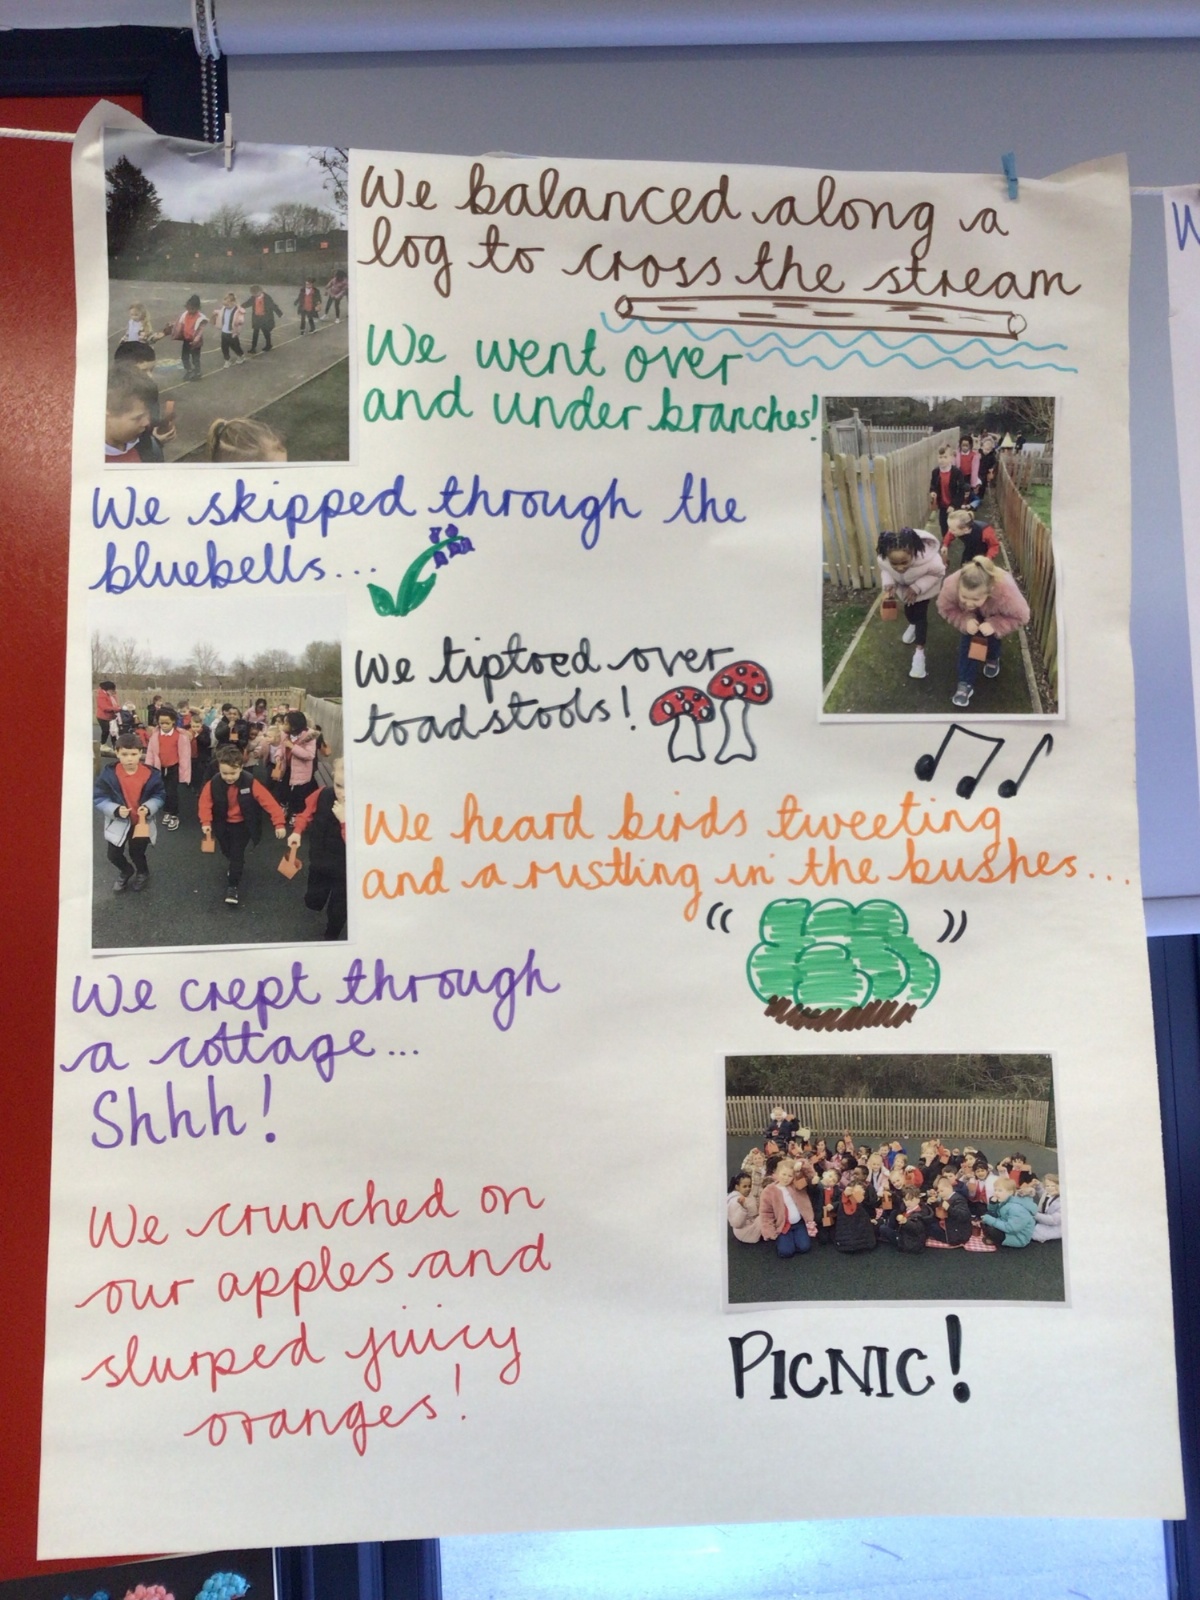 We balanced along a
log to cross the stream
We went over
and under branches!
We skipped through the
bluebells...
We tiptoed over
toadstools!
We heard birds tweeting
and a rustling in the bushes...
We crept through
a cottage...
Shhh!
We crunched on
our apples and
slurped juicy
oranges!
PICNIC!
W